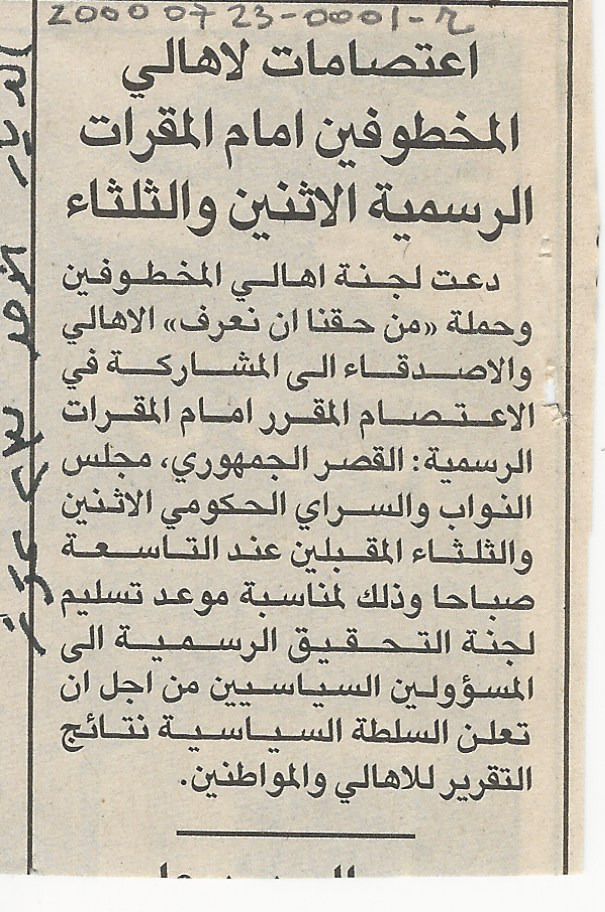 20000723-0001-2
اعتصامات لاهالي
المخطوفين امام المقرات
الرسمية الاثنين والثلثاء
دعت لجنة اهالي المخطوفين
وحملة «من حقنا ان نعرف» الاهالي
والاصدقاء الى المشاركة في
الاعتصام المقرر امام المقرات
الرسمية: القصر الجمهوري، مجلس
النواب والسراي الحكومي الاثنين
والثلثاء المقبلين عند التاسعة
صباحا وذلك لمناسبة موعد تسليم
لجنة التحقيق الرسمية الى
المسؤولين السياسيين من اجل ان
تعلن السلطة السياسية نتائج
التقرير للاهالي والمواطنين.
الديار الاحد ٢٣